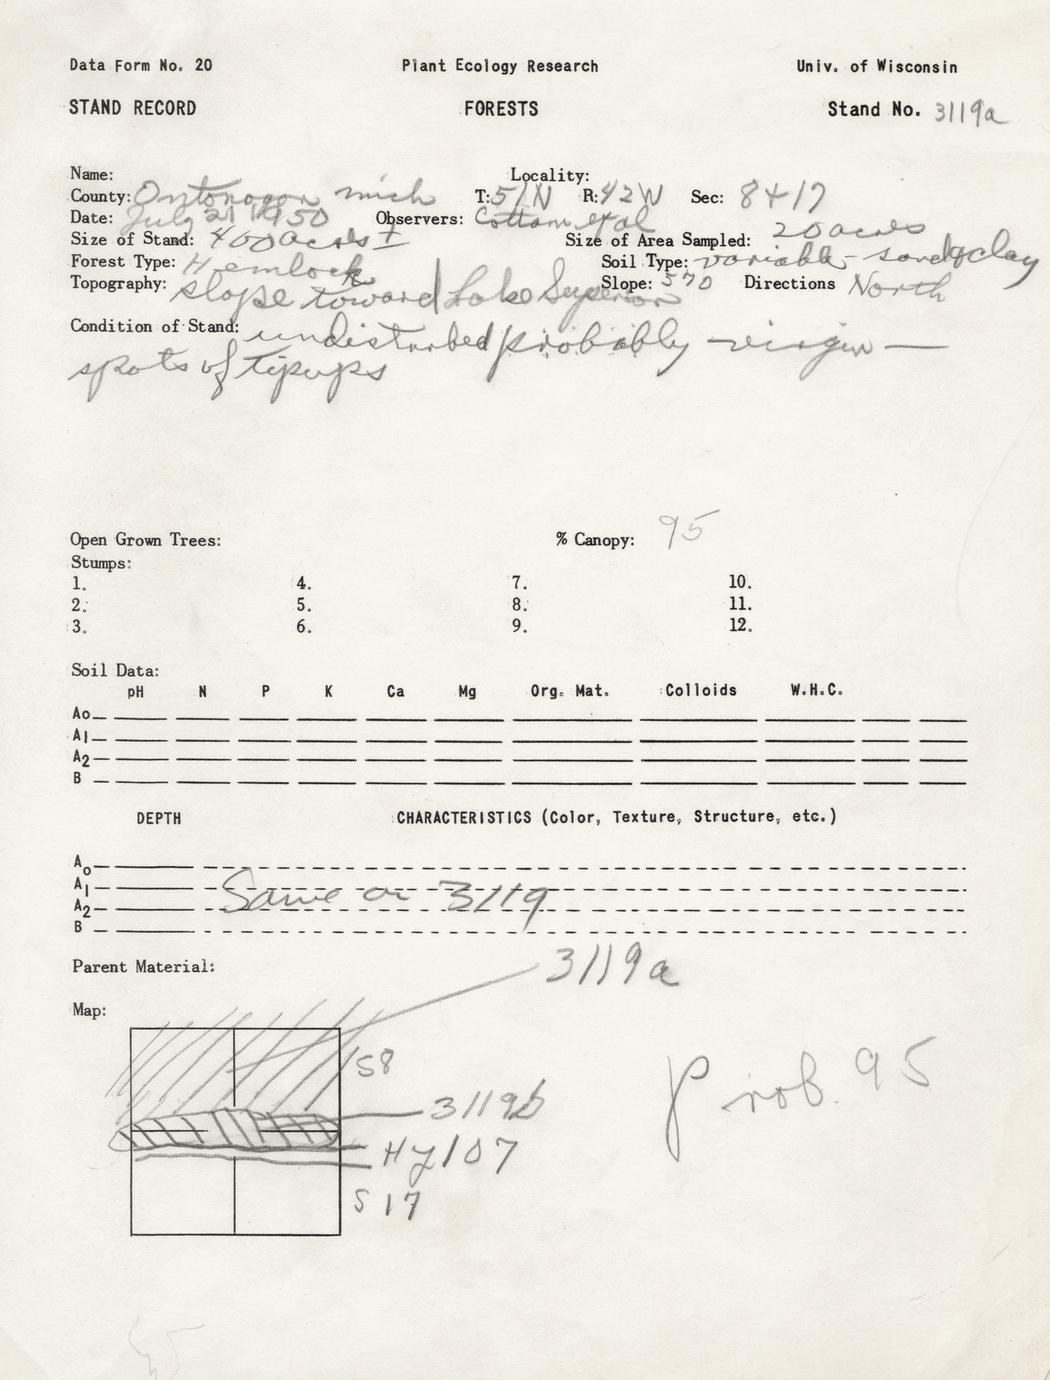 Data Form No. 20 Plant Ecology Research Univ. of Wisconsin
STAND RECORD FORESTS Stand No. 3119a
Name: Locality:
County: Ontonogon mich T: 51N R: 42W Sec: 8+17
Date: July 21 1950 Observers: Cottam et al
Size of Stand: 400 acres ± Size of Area Sampled: 20 acres
Forest Type: Hemlock Soil Type: variable - sandy clay
Topography: slope toward Lake Superior Slope: 5% Directions North
Condition of Stand: undisturbed probably virgin —
spots of tipups
Open Grown Trees: % Canopy: 95
Stumps:
1. 4. 7. 10.
2. 5. 8. 11.
3. 6. 9. 12.
Soil Data:
pH N P K Ca Mg Org. Mat. Colloids W.H.C.
Ao
A1
A2
B
DEPTH CHARACTERISTICS (Color, Texture, Structure, etc.)
Ao
A1 Same as 3119
A2
B
Parent Material: 3119a
Map:
S8
Prob. 95
3119b
Hy 107
S 17